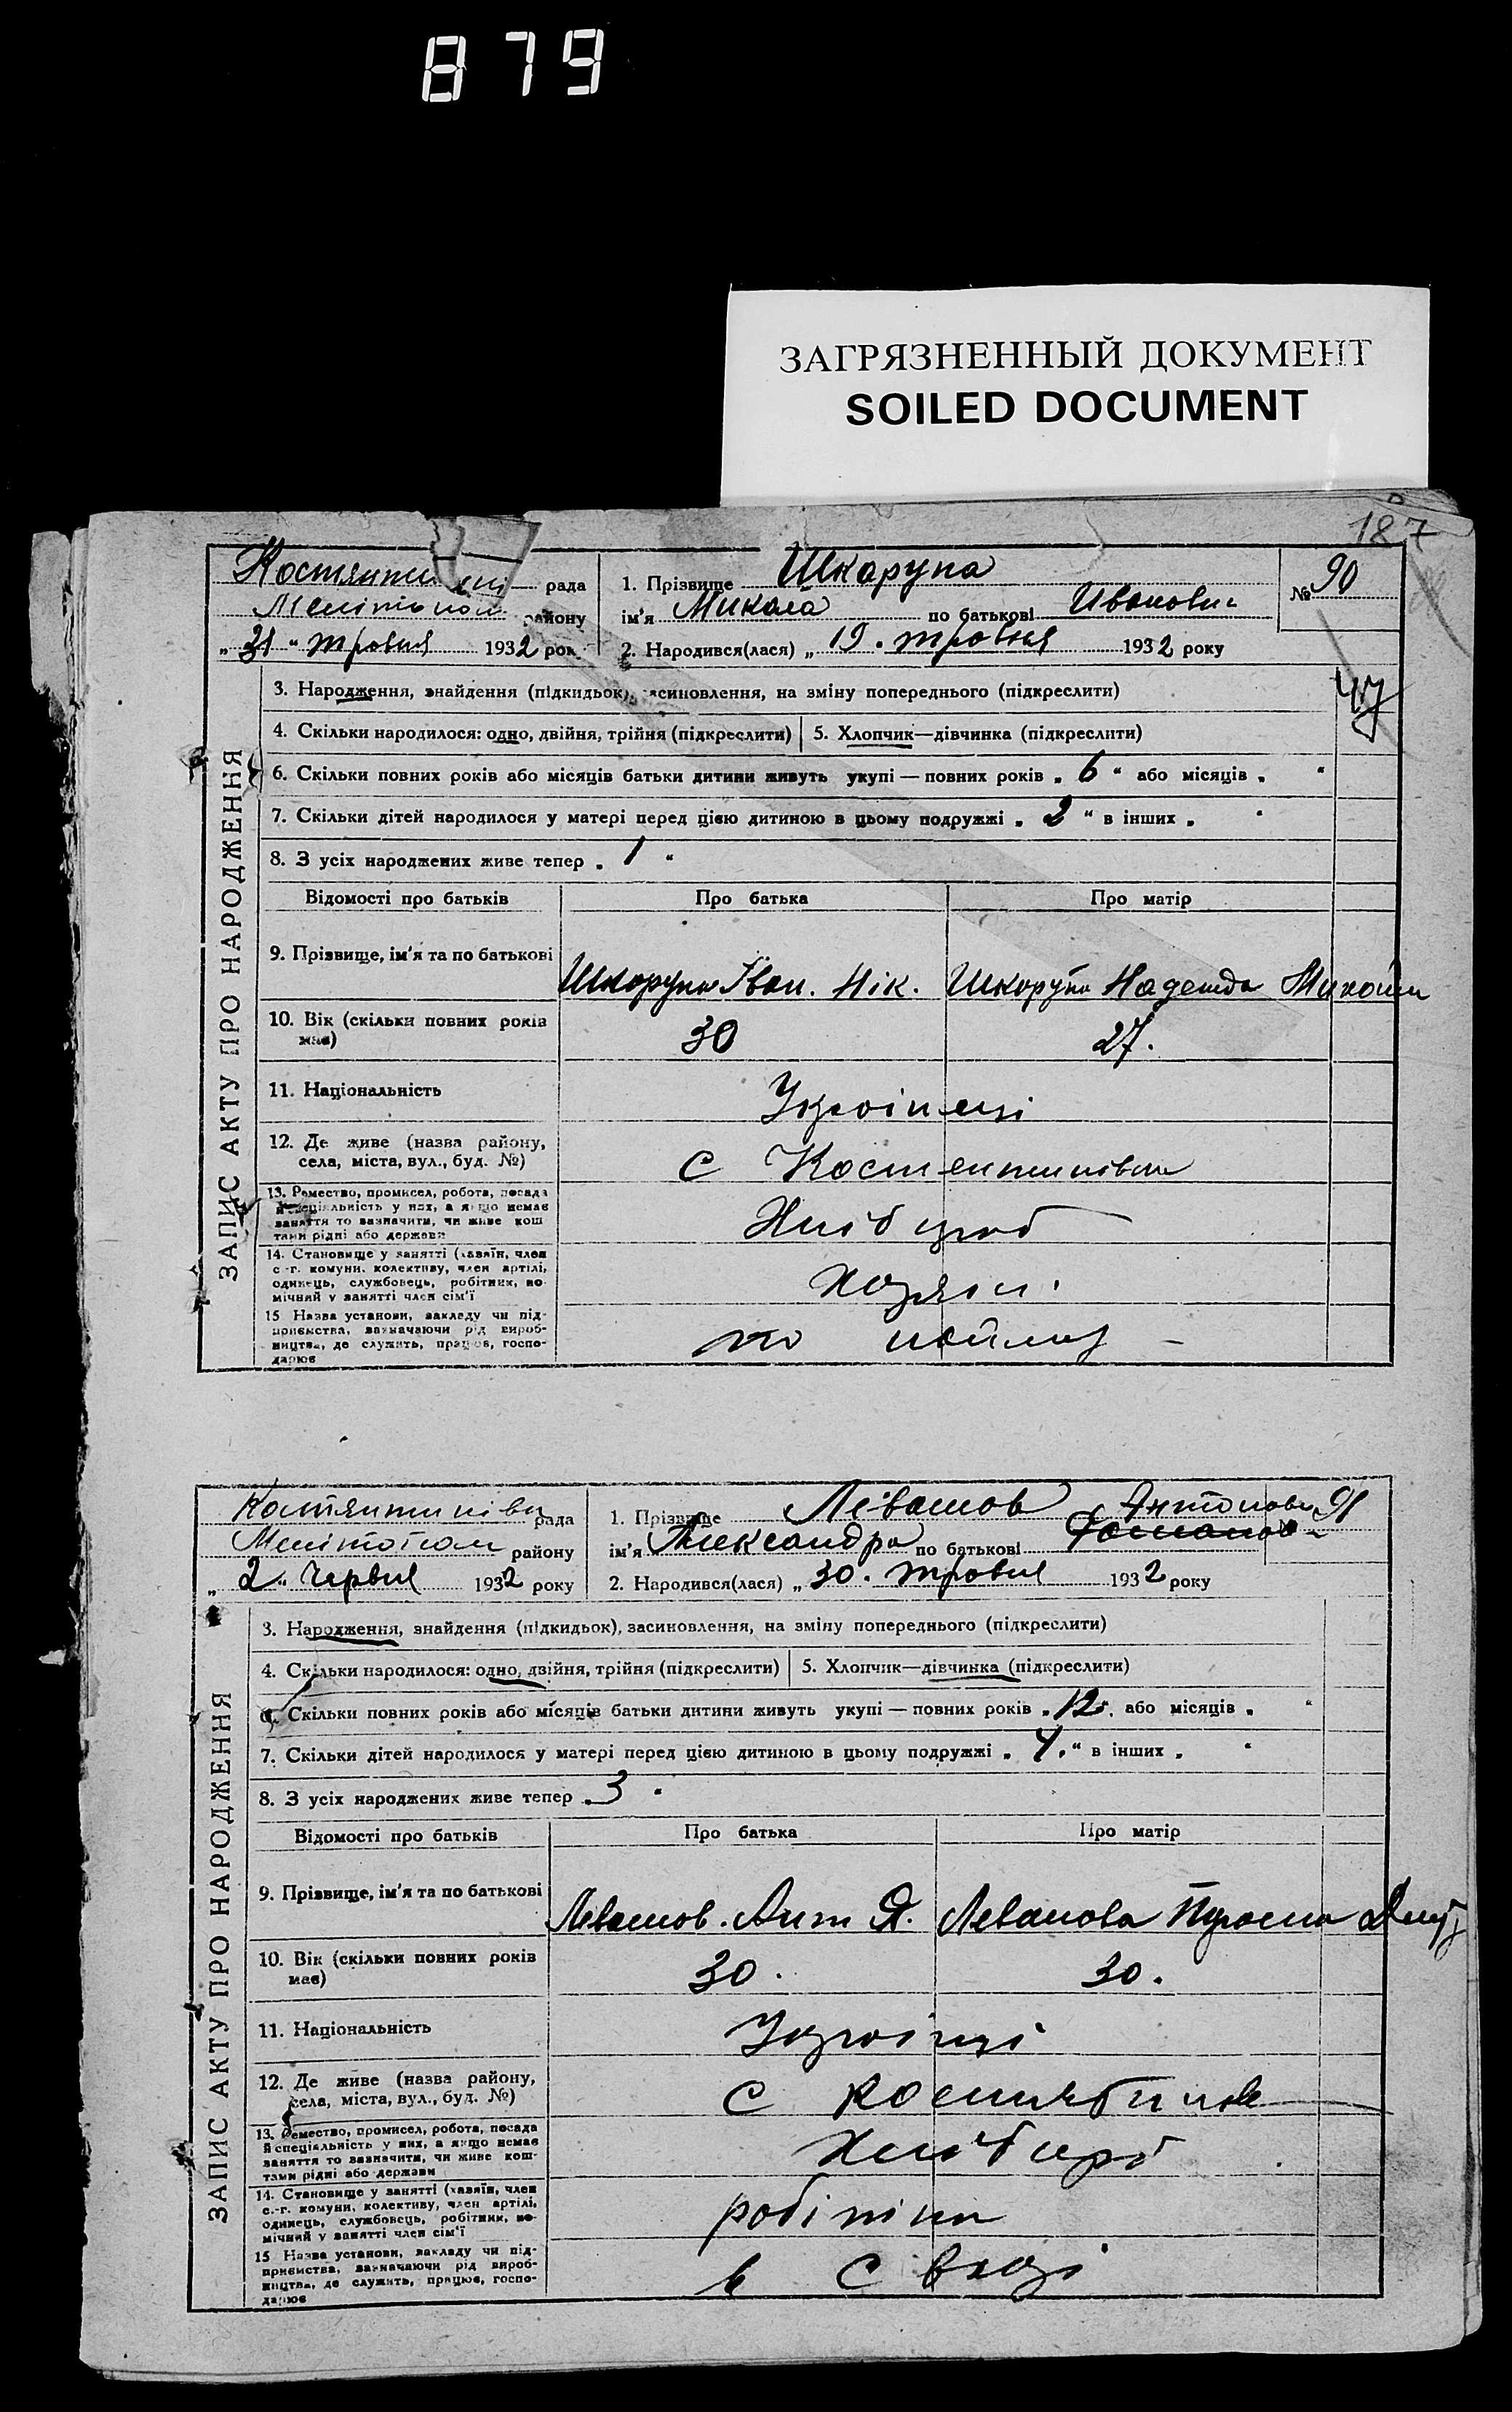 879
ЗАГРЯЗНЕННЫЙ ДОКУМЕНТ
SOILED DOCUMENT
187
рада
Мелітопол району
„31“ травня 1932 рок
1. Прізвище Шкарупа
ім'я Микола по батькові Иванович
2. Народився(лася) „19. травня 1932 року
№ 90
ЗАПИС АКТУ ПРО НАРОДЖЕННЯ
3. Народження, знайдення (підкидьок), засиновлення, на зміну попереднього (підкреслити)
4. Скільки народилося: одно, двійня, трійня (підкреслити) 5. Хлопчик—дівчинка (підкреслити)
6. Скільки повних років або місяців батьки дитини живуть укупі — повних років „6“ або місяців „ “
7. Скільки дітей народилося у матері перед цією дитиною в цьому подружжі „2“ в інших „ “
8. З усіх народжених живе тепер „1“
Відомості про батьків Про батька Про матір
9. Прізвище, ім'я та по батькові Шкарупа Іван. Нік. Шкарупа Надежда
10. Вік (скільки повних років має) 30 27.
11. Національність Українці
12. Де живе (назва району, села, міста, вул., буд. №) с Костентинівка
13. Ремество, промисел, робота, посада й спеціяльність у них, а якщо немає
заняття то зазначити, чи живе кош
тами рідні або держави Хлібороб
14. Становище у занятті (хазяїн, член
с.-г. комуни, колективу, член артілі,
одинець, службовець, робітник, по
мічний у занятті член сім'ї
15 Назва установи, закладу чи під-
приємства, зазначаючи рід вироб-
ництва, де служить, працює, госпо-
дарює по найму
Костянтинівк рада
Мелітопол району
„2“ Червня 1932 року
1. Прізвище Лівашов
ім'я Александра по батькові Антонов
2. Народився(лася) „30. травня 1932 року
91
ЗАПИС АКТУ ПРО НАРОДЖЕННЯ
3. Народження, знайдення (підкидьок), засиновлення, на зміну попереднього (підкреслити)
4. Скільки народилося: одно, двійня, трійня (підкреслити) 5. Хлопчик—дівчинка (підкреслити)
6. Скільки повних років або місяців батьки дитини живуть укупі — повних років „12“ або місяців „ “
7. Скільки дітей народилося у матері перед цією дитиною в цьому подружжі „4.“ в інших „ “
8. З усіх народжених живе тепер „3“
Відомості про батьків Про батька Про матір
9. Прізвище, ім'я та по батькові Левашов. Ант Я. Левашова
10. Вік (скільки повних років має) 30. 30.
11. Національність Українці
12. Де живе (назва району, села, міста, вул., буд. №) с
13. Ремество, промисел, робота, посада
й спеціяльність у них, а якщо немає
заняття то зазначити, чи живе кош-
тами рідні або держави Хлібороб
14. Становище у занятті (хазяїн, член
с.-г. комуни, колективу, член артілі,
одинець, службовець, робітник, по-
мічний у занятті член сім'ї робітник
15 Назва установи, закладу чи під-
приємства, зазначаючи рід вироб-
ництва, де служить, працює, госпо-
дарює в